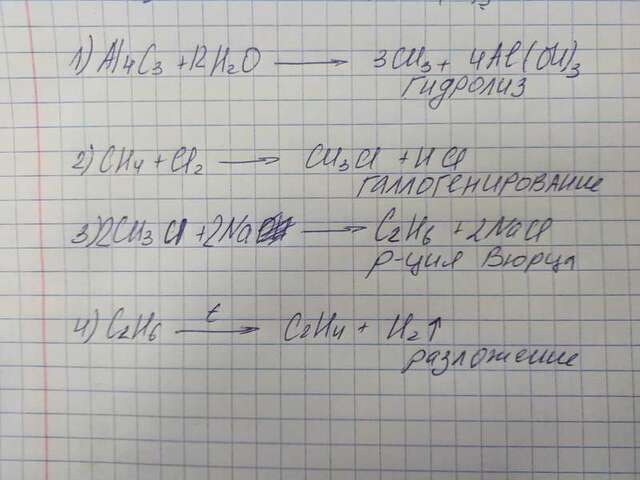 1) Al4C3 + 12H2O ⟶ 3CH3 + 4Al(OH)3
гидролиз
2) CH4 + Cl2 ⟶ CH3Cl + HCl
галлогенирование
3) 2CH3Cl + 2Na ⟶ C2H6 + 2NaCl
р-ция Вюрца
4) C2H6 t⟶ C2H4 + H2↑
разложение